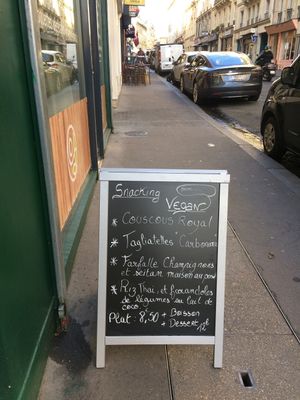 Snacking
VEGAN
* Couscous Royal
* Tagliatelles "Carbonara
* Farfalle Champignons
et seitan maison au
* Riz Thaï, et farandoles
de légumes au lait de
coco
Plat: 8,50 + Boisson
+ Dessert